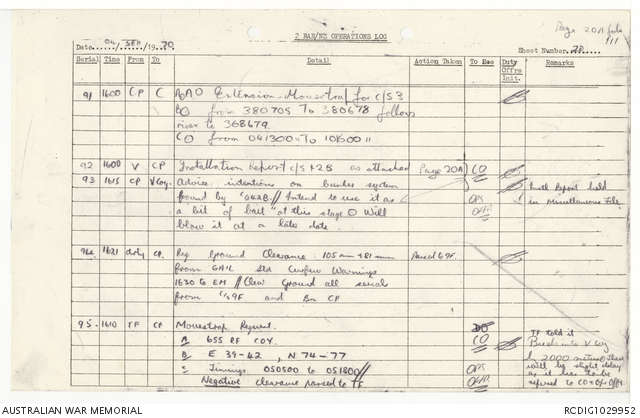 Page 20A
2 RAR/NZ OPERATIONS LOG
Date 04 / SEP / 19 70
Sheet Number 20
Serial Time From To Detail Action Taken To See Duty Offrs Init. Remarks
91 1600 CP C AO Extension - Mousetrap for C/S 3
from 380705 To 380678 follows
river to 368679
from 041300 To 101500 H
92 1600 V CP Installation Report C/S 42B as attached Page 20A CO
93 1615 CP V Coy. Advise intentions on bunker system
found by 042B. // Intend to use it as
a bit of bait "at this stage" Will
blow it at a later date.
OPS
Report held
in Miscellaneous File
94 1621 CP. Req Ground Clearance 105mm + 81mm
from Curfew Warnings
1630 to EM // Clear Ground all serial
from 9F and Bn CP
95 1610 TF CP Mousetrap Request.
A 655 RF COY.
B E 39-42, N 74-77
C Timings 050500 to 051800 //
Negative clearance passed to TF.
CO
OPS
TF told it
V Coy
2000 metres
will be slight delay
as it has to be
referred to CO
AUSTRALIAN WAR MEMORIAL
RCDIG1029952